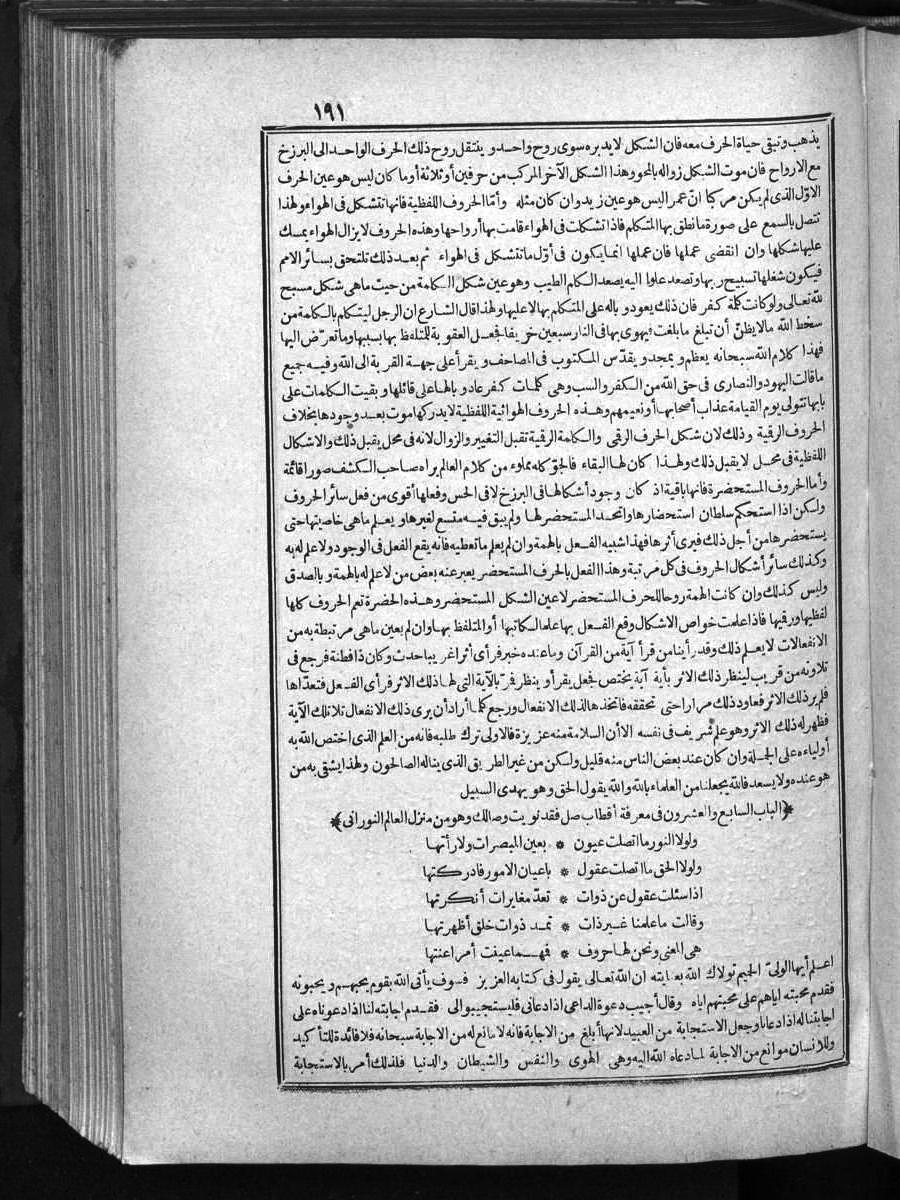 ١٩١
يذهب وتبقى حياة الحرف معه فان الشكل لا يدبره سوى روح واحد وينتقل روح ذلك الحرف الواحد الى البرزخ
مع الارواح فان موت الشكل زواله بالمحو وهذا الشكل الآخر المركب من حرفين أو ثلاثة أو ما كان ليس هو عين الحرف
الاوّل الذى لم يكن مركبا انّ عمرا ليس هو عين زيد وان كان مثله وأمّا الحروف اللفظية فانها تتشكل فى الهواء ولهذا
تتصل بالسمع على صورة ما نطق بها المتكلم فاذا تشكلت فى الهواء قامت بها أرواحها وهذه الحروف لا يزال الهواء يمسك
عليها شكلها وان انقضى عملها فان عملها انما يكون فى أوّل ما تتشكل فى الهواء ثم بعد ذلك تلتحق بسائر الامم
فيكون شغلها تسبيح ربها وتصعد علوا اليه يصعد الكلم الطيب وهو عين شكل الكلمة من حيث ما هى شكل مسبح
لله تعالى ولو كانت كلمة كفر فان ذلك يعود وباله على المتكلم بها لا عليها ولهذا قال الشارع ان الرجل ليتكلم بالكلمة من
سخط الله ما لا يظنّ أن تبلغ ما بلغت فيهوى بها فى النار سبعين خريفا فجعل العقوبة للمتلفظ بها بسببها وما تعرّض اليها
فهذا كلام الله سبحانه يعظم ويمجد ويقدّس المكتوب فى المصاحف ويقرأ على جهة القربة الى الله وفيه جميع
ما قالت اليهود والنصارى فى حق الله من الكفر والسب وهى كلمات كفر عاد وبالها على قائلها وبقيت الكلمات على
بابها تتولى يوم القيامة عذاب أصحابها أو نعيمهم وهذه الحروف الهوائية اللفظية لا يدركها موت بعد وجودها بخلاف
الحروف الرقمية وذلك لان شكل الحرف الرقمى والكلمة الرقمية تقبل التغيير والزوال لانه فى محل يقبل ذلك والاشكال
اللفظية فى محل لا يقبل ذلك ولهذا كان لها البقاء فالجوّ كله مملوء من كلام العالم يراه صاحب الكشف صورا قائمة
وأما الحروف المستحضرة فانها باقية اذ كان وجود أشكالها فى البرزخ لا فى الحس وفعلها أقوى من فعل سائر الحروف
ولكن اذا استحكم سلطان استحضارها واتحد المستحضر لها ولم يبق فيه متسع لغيرها ويعلم ما هى خاصيتها حتى
يستحضرها من أجل ذلك فيرى أثرها فهذا شبيه الفعل بالهمة وان لم يعلم ما تعطيه فانه يقع الفعل فى الوجود ولا علم له به
وكذلك سائر أشكال الحروف فى كل مرتبة وهذا الفعل بالحرف المستحضر يعبر عنه بعض من لا علم له بالهمة وبالصدق
وليس كذلك وان كانت الهمة روحا للحرف المستحضر لا عين الشكل المستحضر وهذه الحضرة تعم الحروف كلها
لفظيها ورقميها فاذا علمت خواص الاشكال وقع الفعل بها علما لكاتبها أو المتلفظ بها وان لم يعين ما هى مرتبطة به من
الانفعالات لا يعلم ذلك وقد رأينا من قرأ آية من القرآن وما عنده خبر فرأى أثرا غريبا حدث وكان ذا فطنة فرجع فى
تلاوته من قريب لينظر ذلك الاثر بأية آية يختص فجعل يقرأ وينظر فمرّ بالآية التى لها ذلك الاثر فرأى الفعل فتعدّاها
فلم ير ذلك الاثر فعاود ذلك مرارا حتى تحققه فاتخذها لذلك الانفعال ورجع كلما أراد أن يرى ذلك الانفعال تلا تلك الآية
فظهر له ذلك الاثر وهو علم شريف فى نفسه الا أن السلامة منه عزيزة فالاولى ترك طلبه فانه من العلم الذى اختص الله به
أولياءه على الجملة وان كان عند بعض الناس منه قليل ولكن من غير الطريق الذى يناله الصالحون ولهذا يشقى به من
هو عنده ولا يسعد فالله يجعلنا من العلماء بالله والله يقول الحق وهو يهدى السبيل
﴿الباب السابع والعشرون فى معرفة أقطاب صل فقد نويت وصالك وهو من منزل العالم النورانى﴾
ولولا النور ما اتصلت عيون * بعين المبصرات ولا رأتها
ولولا الحق ما اتصلت عقول * باعيان الامور فادركتها
اذا سئلت عقول عن ذوات * تعدّ مغايرات أنكرتها
وقالت ما علمنا غير ذات * تمد ذوات خلق أظهرتها
هى المعنى ونحن لها حروف * فهما عينت أمرا عنتها
اعلم أيها الولىّ الحميم تولاك الله بعنايته ان الله تعالى يقول فى كتابه العزيز فسوف يأتى الله بقوم يحبهم ويحبونه
فقدم محبته اياهم على محبتهم اياه وقال أجيب دعوة الداعى اذا دعانى فليستجيبوا لى فقدم اجابته لنا اذا دعوناه على
اجابتنا له اذا دعانا وجعل الاستجابة من العبيد لانها أبلغ من الاجابة فانه لا مانع له من الاجابة سبحانه فلا فائدة للتأكيد
وللانسان موانع من الاجابة لما دعاه الله اليه وهى الهوى والنفس والشيطان والدنيا فلذلك أمر بالاستجابة